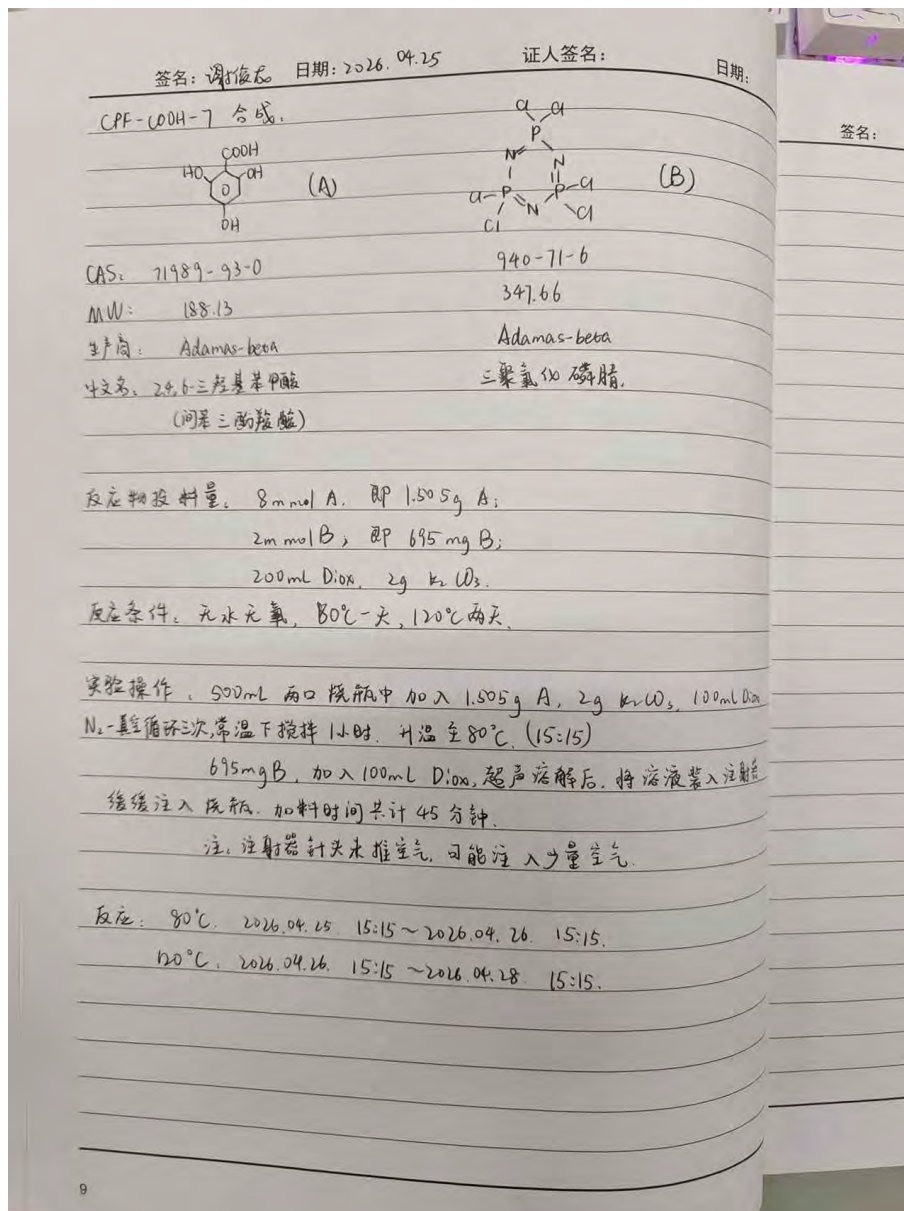 签名: 谢俊杰 日期: 2026.04.25 证人签名: 日期:
CPF-COOH-7 合成.
COOH
HO OH
OH
(A)
Cl Cl
P
N N
Cl P P Cl
Cl N Cl
(B)
CAS: 71989-93-0 940-71-6
MW: 188.13 347.66
生产商: Adamas-beta Adamas-beta
中文名: 2,4,6-三羟基苯甲酸 三聚氯化磷腈.
(间苯三酚羧酸)
反应物投料量: 8mmol A. 即 1.505g A;
2mmol B; 即 695mg B;
200mL Diox. 2g K2CO3.
反应条件: 无水无氧, 80℃一天, 120℃两天.
实验操作: 500mL 两口烧瓶中加入 1.505g A, 2g K2CO3, 100mL Diox
N2-真空循环三次,常温下搅拌1小时. 升温至80℃. (15:15)
695mg B, 加入100mL Diox, 超声溶解后. 将溶液装入注射器
缓缓注入烧瓶. 加料时间共计45分钟.
注: 注射器针头未推空气, 可能注入少量空气.
反应: 80℃. 2026.04.25 15:15~2026.04.26. 15:15.
120℃. 2026.04.26. 15:15~2026.04.28 15:15.
9
签名: